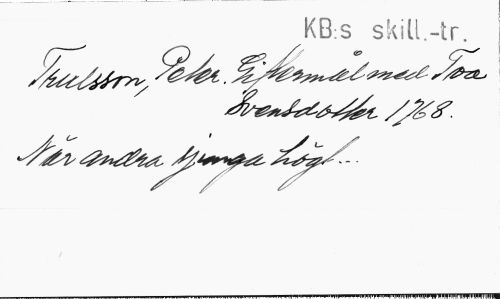 KB:s skill.-tr.
Trulsson, Peter. Giftermål med Tva
Svensdotter 1768.
När andra sjunga högt...